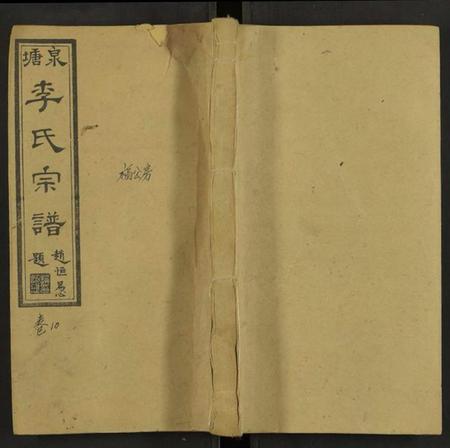 泉塘
李氏宗譜
趙恒惖
題
卷10
福公房